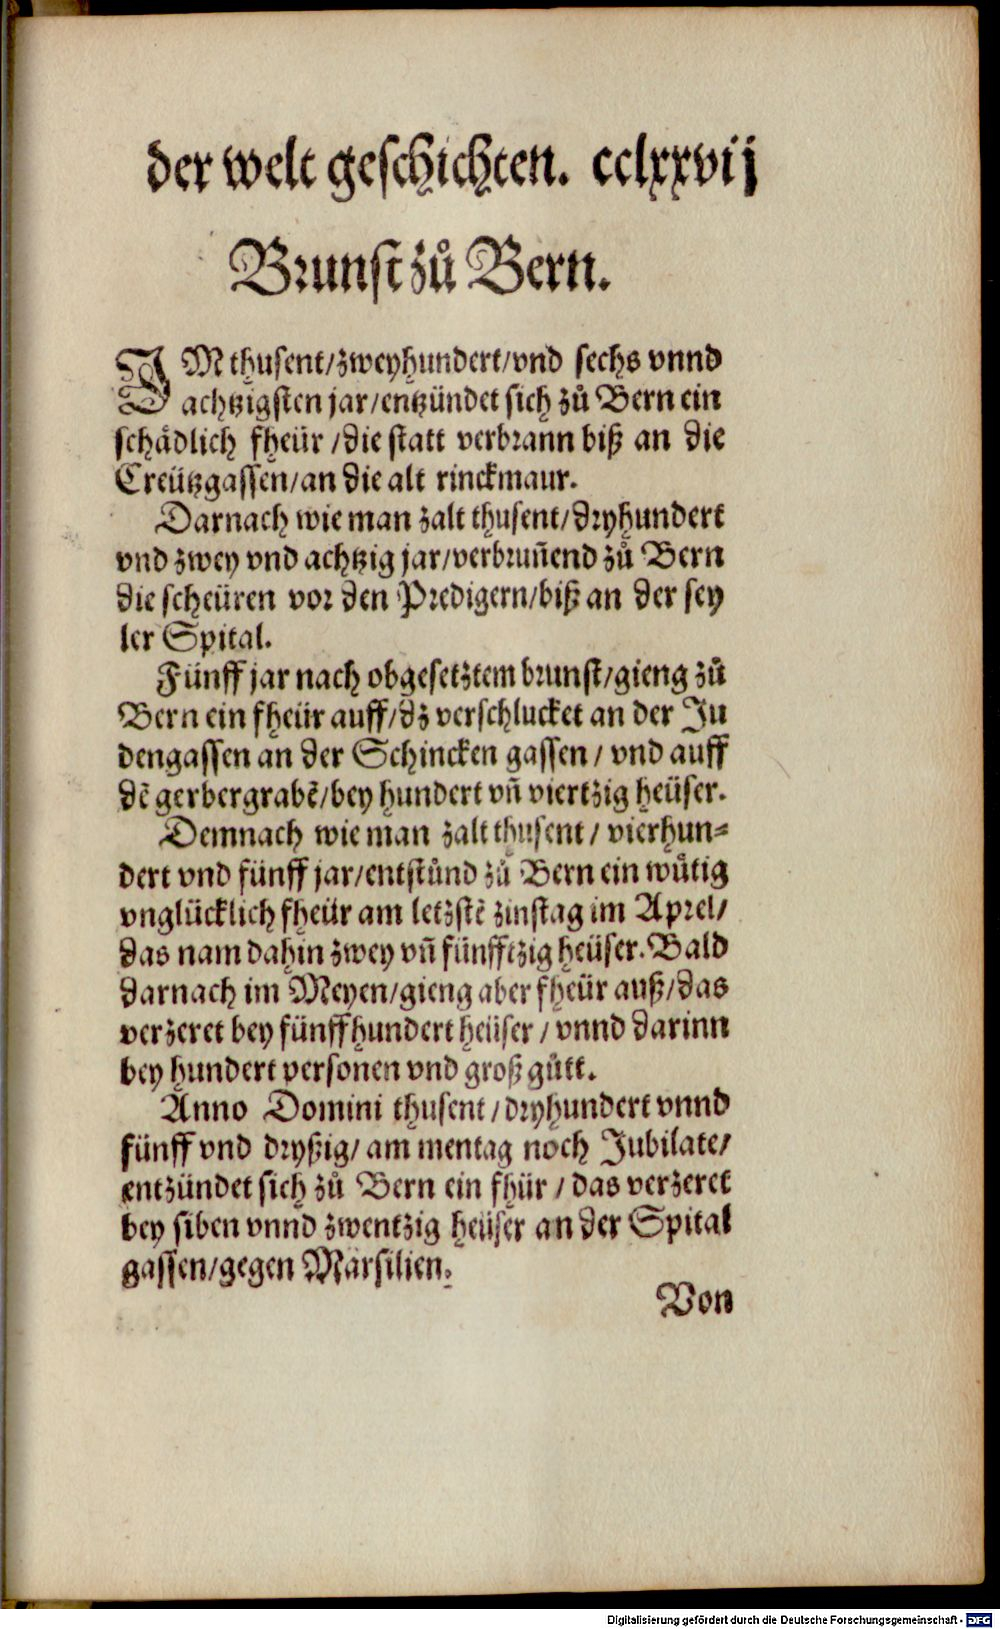 der welt geschichten. cclxxvij
Brunst zů Bern.
IM thusent/zweyhundert/vnd sechs vnnd
achtzigsten jar/entzündet sich zů Bern ein
schådlich fheür/die statt verbrann biß an die
Creützgassen/an die alt rinckmaur.
Darnach wie man zalt thusent/dryhundert
vnd zwey vnd achtzig jar/verbruñend zů Bern
die scheüren vor den Predigern/biß an der sey
ler Spital.
Fünff jar nach obgesetztem brunst/gieng zů
Bern ein fheür auff/dz verschlucket an der Ju
dengassen an der Schincken gassen/vnd auff
dẽ gerbergrabẽ/bey hundert vñ viertzig heüser.
Demnach wie man zalt thusent/vierhun=
dert vnd fünff jar/entstůnd zů Bern ein wůtig
vnglücklich fheür am letzstẽ zinstag im Aprel/
das nam dahin zwey vñ fünfftzig heüser. Bald
darnach im Meyen/gieng aber fheür auß/das
verzeret bey fünffhundert heüser/vnnd darinn
bey hundert personen vnd groß gůtt.
Anno Domini thusent/dryhundert vnnd
fünff vnd dryßig/am mentag noch Jubilate/
entzündet sich zů Bern ein fhür/das verzeret
bey siben vnnd zwentzig heüser an der Spital
gassen/gegen Marsilien.
Von
Digitalisierung gefördert durch die Deutsche Forschungsgemeinschaft - DFG